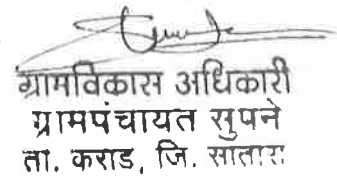 ग्रामविकास अधिकारी
ग्रामपंचायत सुपने
ता. कराड, जि. सातारा